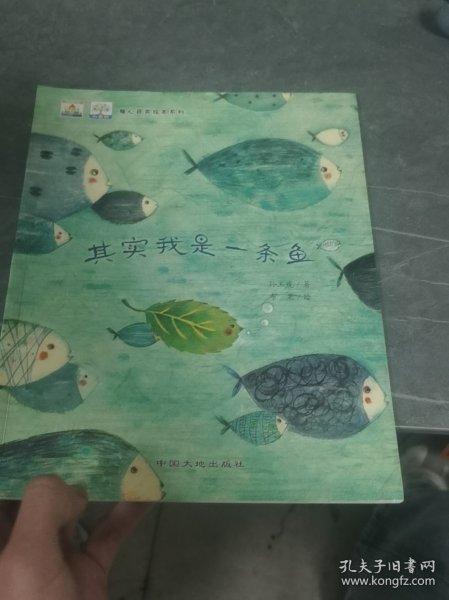 暖心获奖绘本系列
其实我是一条鱼
孙玉虎/著
中国大地出版社
孔夫子旧书网
www.kongfz.com